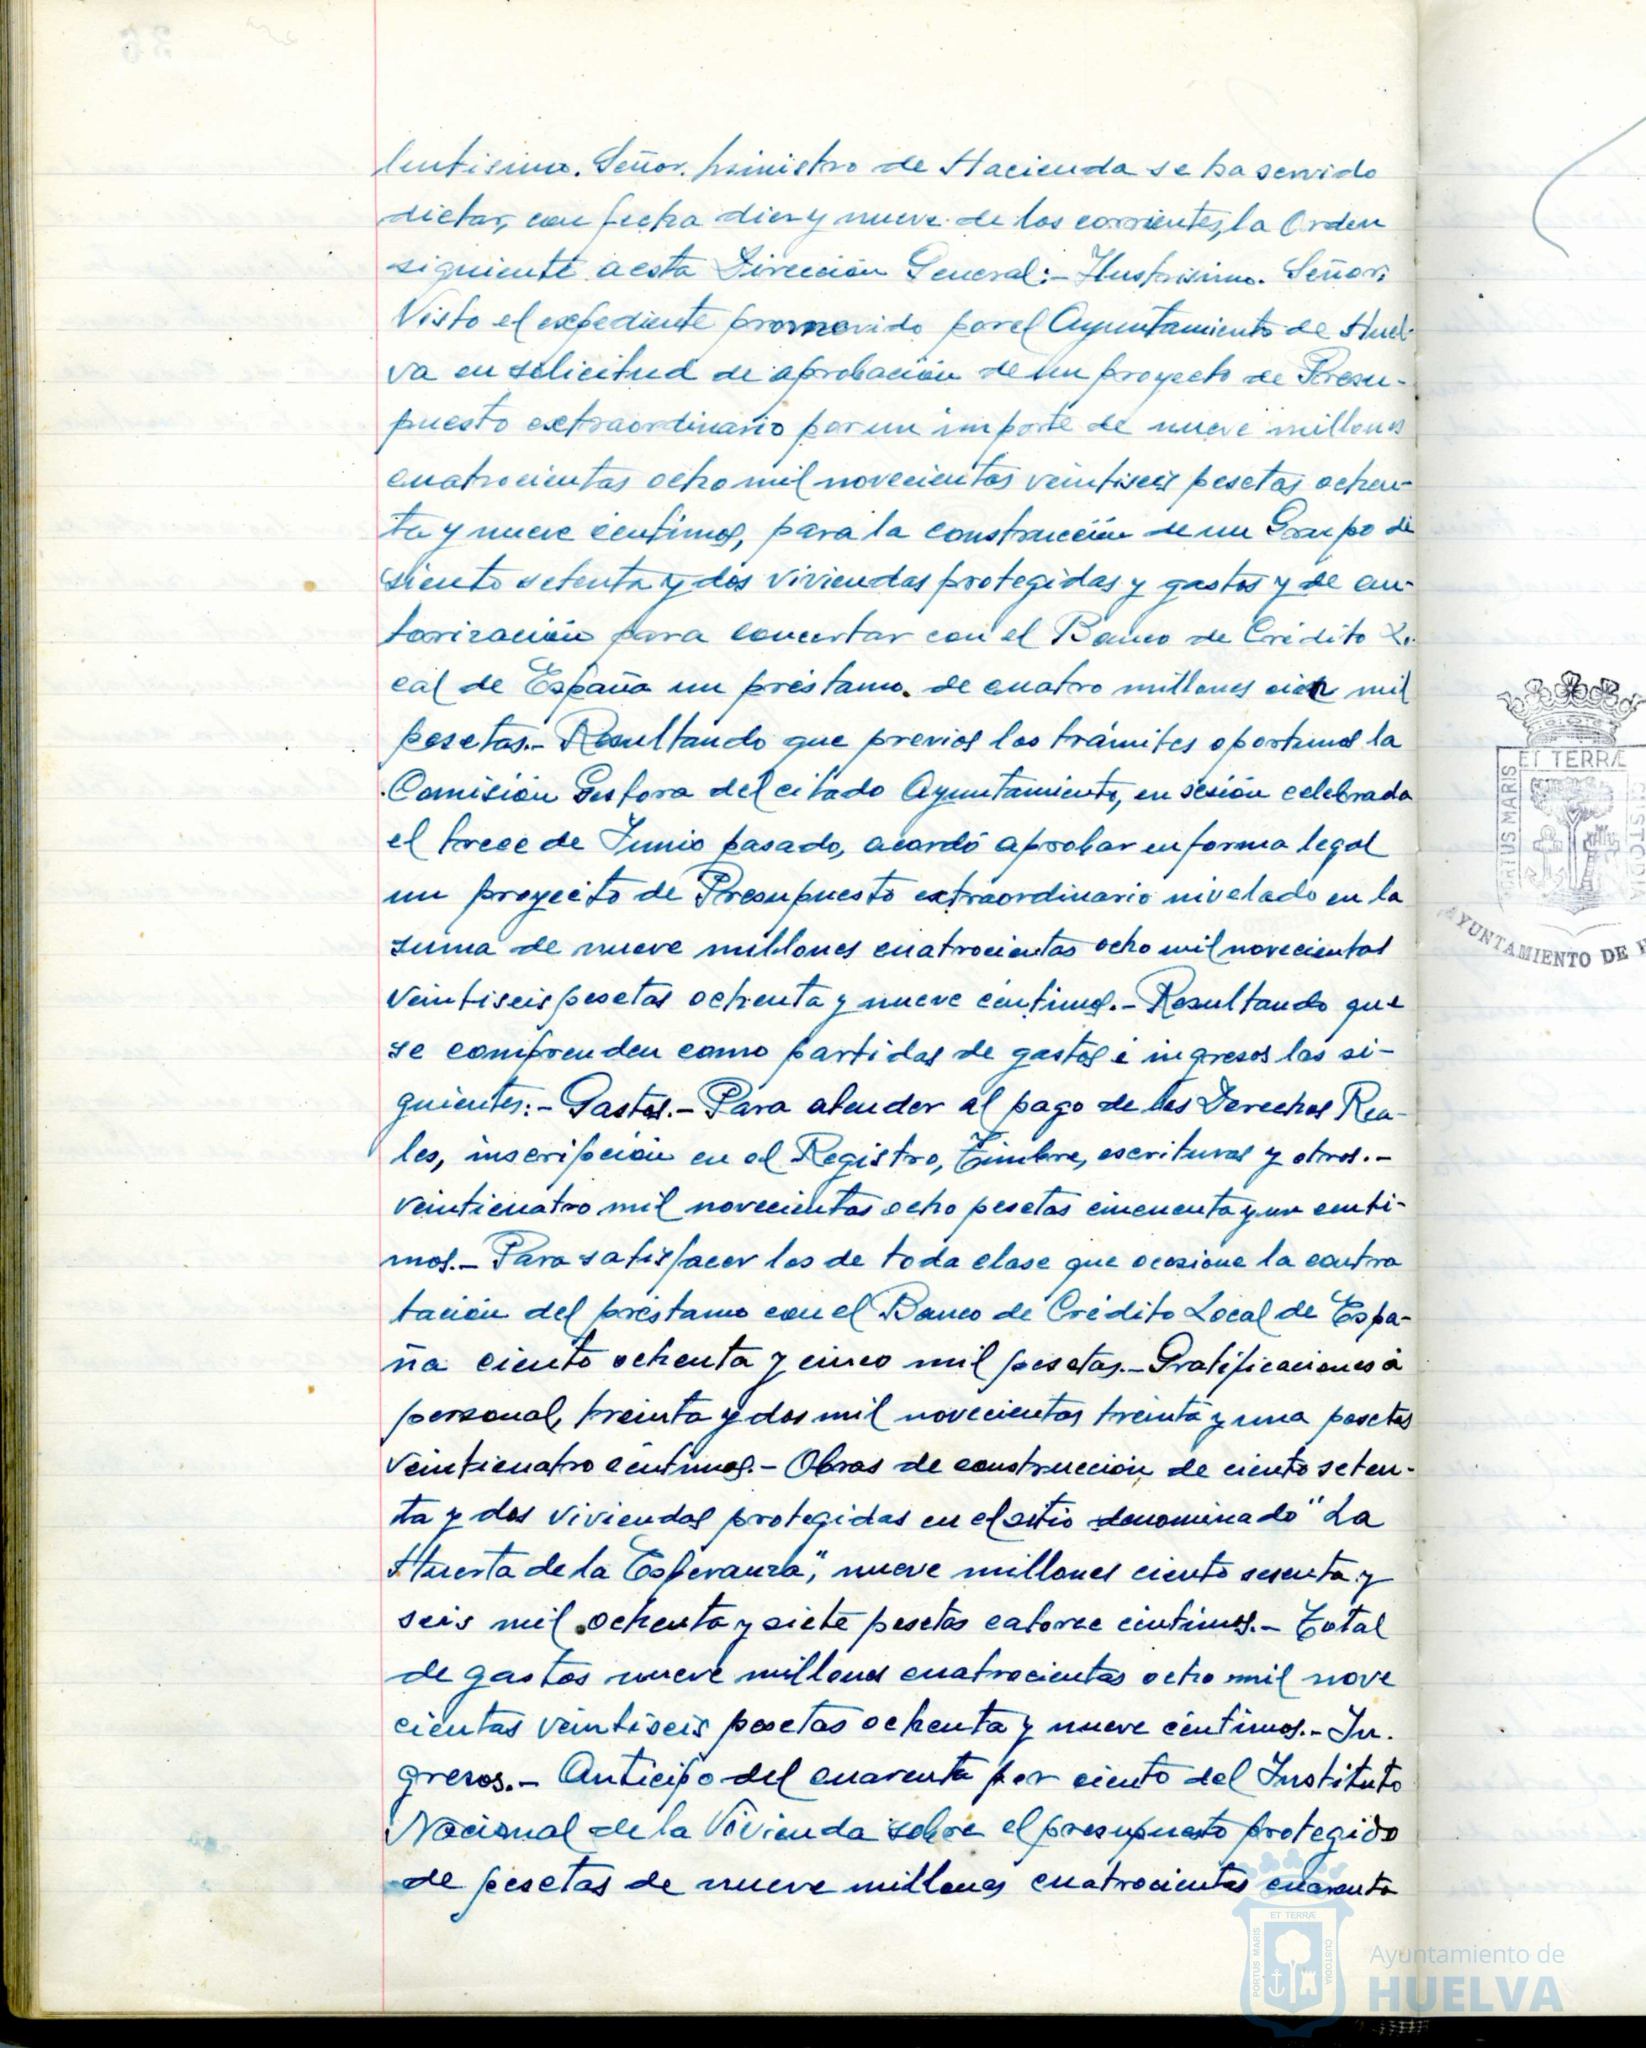 lentisimo. Señor. Ministro de Hacienda se ha servido
dictar, con fecha diez y nueve de los corrientes, la Orden
siguiente a esta Dirección General:- Ilustrisimo. Señor:
Visto el expediente promovido por el Ayuntamiento de Huel-
va en solicitud de aprobación de un proyecto de Presu-
puesto extraordinario por un importe de nueve millones
cuatrocientas ocho mil novecientas veintiseis pesetas ochen-
ta y nueve céntimos, para la construcción de un Grupo de
siento setenta y dos viviendas protegidas y gastos y de au-
torización para concertar con el Banco de Crédito Lo-
cal de España un préstamo. de cuatro millones cien mil
pesetas.- Resultando que previos los trámites oportunos la
Comisión Gestora del citado Ayuntamiento, en sesión celebrada
el trece de Junio pasado, acordó aprobar en forma legal
un proyecto de Presupuesto extraordinario nivelado en la
suma de nueve millones cuatrocientas ocho mil novecientas
veintiseis pesetas ochenta y nueve céntimos.- Resultando que
se comprenden como partidas de gastos é ingresos las si-
guientes:- Gastos.- Para atender al pago de los Derechos Rea-
les, inscripción en el Registro, Timbre, escrituras y otros.-
veinticuatro mil novecientas ocho pesetas cincuenta y un centi-
mos.- Para satisfacer los de toda clase que ocasione la contra
tación del préstamo con el Banco de Crédito Local de Espa-
ña ciento ochenta y cinco mil pesetas.- Gratificaciones á
personal, treinta y dos mil novecientas treinta y una pesetas
veinticuatro céntimos.- Obras de construcción de ciento seten-
ta y dos viviendas protegidas en el sitio denominado "La
Huerta de la Esperanza", nueve millones ciento sesenta y
seis mil ochenta y siete pesetas catorce céntimos.- Total
de gastos nueve millones cuatrocientas ocho mil nove
cientas veintiseis pesetas ochenta y nueve céntimos.- In-
gresos.- Anticipo del cuarenta por ciento del Instituto
Nacional de la Vivienda sobre el presupuesto protegido
de pesetas de nueve millones cuatrocientas cuarenta
ET TERRÆ
PORTUS MARIS
CUSTODIA
AYUNTAMIENTO DE H
PORTUS MARIS
ET TERRÆ
CUSTODIA
Ayuntamiento de
HUELVA